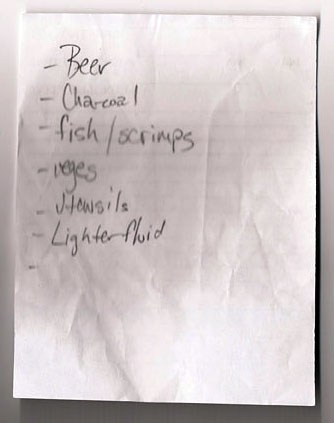 - Beer
- Charcoal
- fish/scrimps
- veges
- Utensils
- Lighter fluid
-